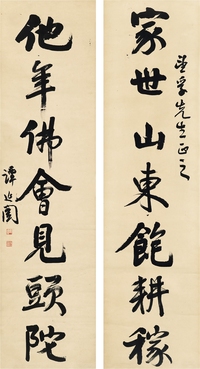 家世山東飽耕稼
先生正之
他年佛會見頭陀
譚延闓